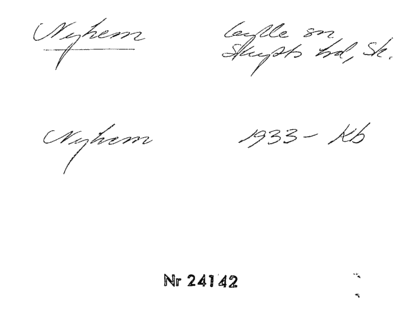 Nyhem
Gylle sn
Skytts hd, Sk.
Nyhem 1933 - Kb
Nr 24142